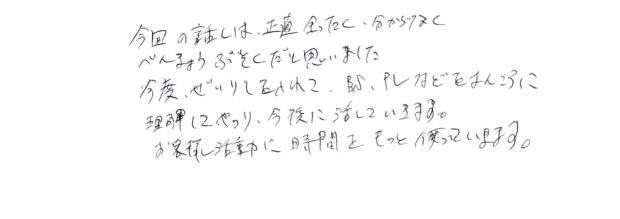 今回の話しは、正直全ったく、分からなく
べんきょうぶそくだと思いました
今度、ぜいりし、PLなどをほんきに
理解してやり、今後に活していきます。
お客様活動に時間をもっと使っていきます。